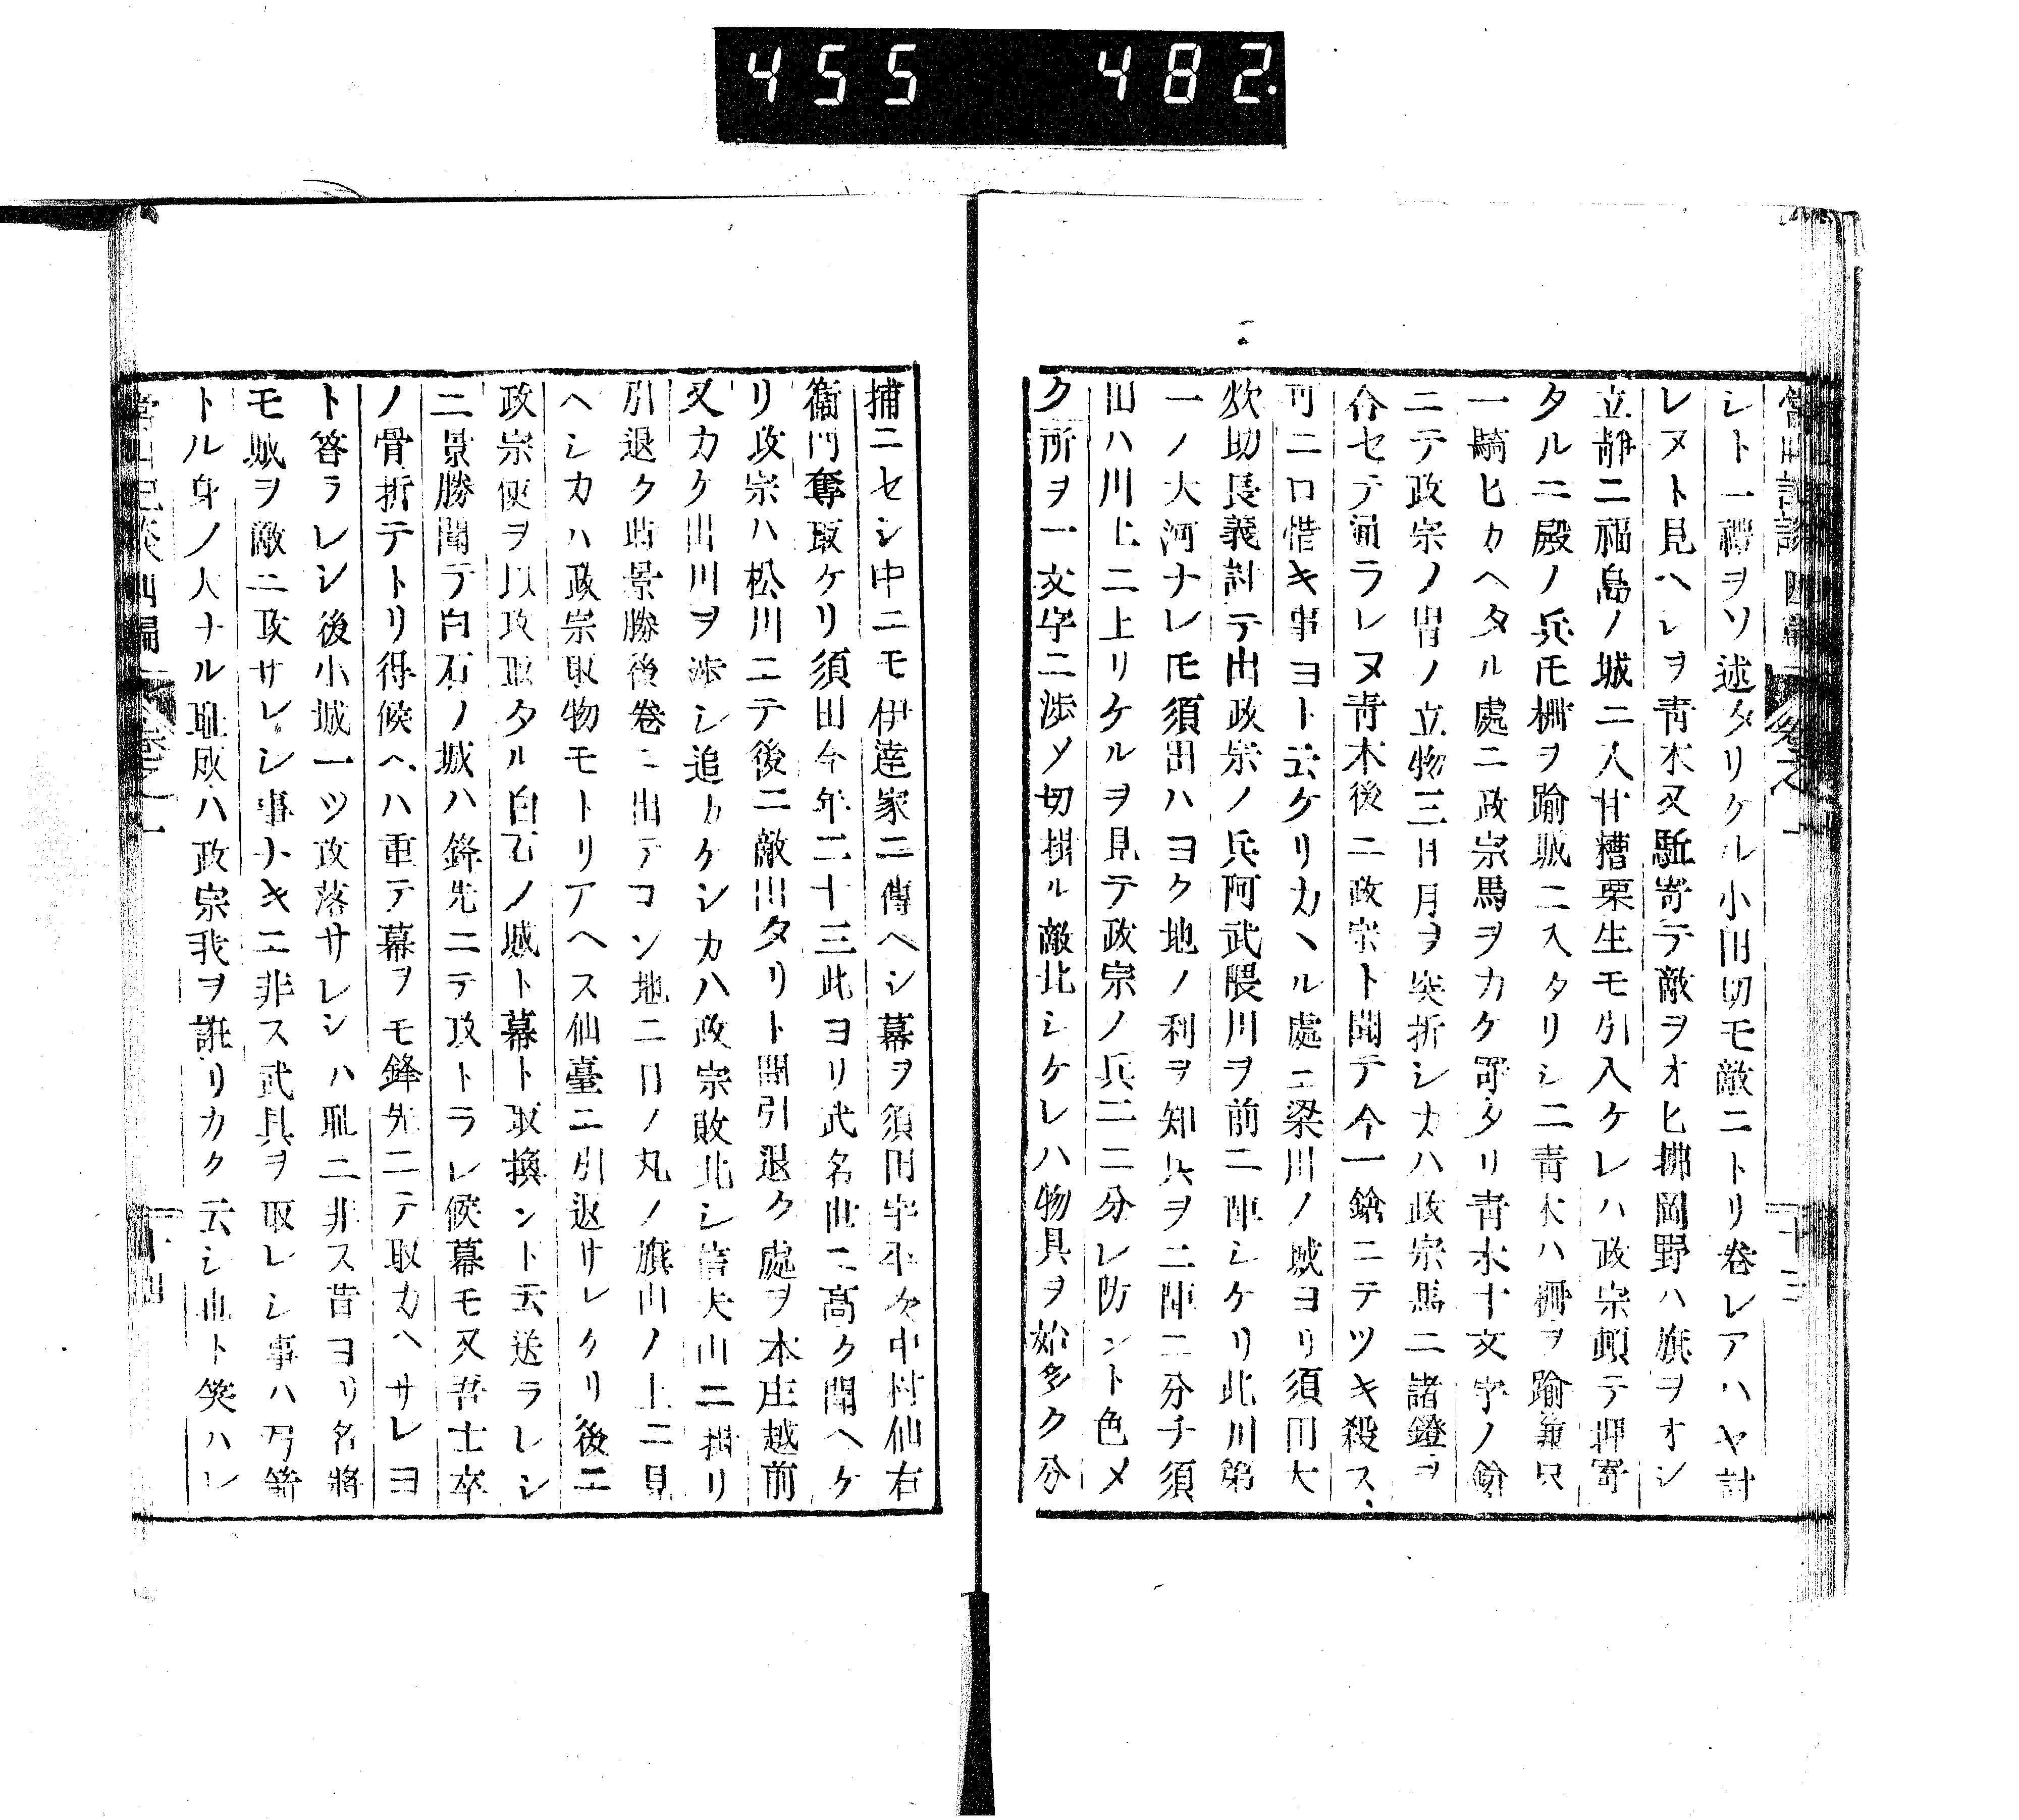 455 482.
シト一禮ヲソ述タリケル小田切モ敵ニトリ卷レアハヤ討
レヌト見ヘシヲ靑木又駈寄テ敵ヲオヒ拂岡野ハ旗ヲオシ
立靜ニ福島ノ城ニ入甘糟栗生モ引入ケレハ政宗頓テ押寄
タルニ殿ノ兵モ柵ヲ踰城ニ入タリシニ靑木ハ柵ヲ踰兼只
一騎ヒカヘタル處ニ政宗馬ヲカケ寄タリ靑木十文字ノ鎗
ニテ政宗ノ冑ノ立物三日月ヲ突折シカハ政宗馬ニ諸鐙ヲ
合セテ通ラレヌ靑木後ニ政宗ト聞テ今一鎗ニテツキ殺ス
可ニ口惜キ事ヨト云ケリカヽル處ニ梁川ノ城ヨリ須田大
炊助長義討テ出政宗ノ兵阿武隈川ヲ前ニ陣シケリ此川第
一ノ大河ナレ𪜈須田ハヨク地ノ利ヲ知兵ヲ二陣ニ分チ須
田ハ川上ニ上リケルヲ見テ政宗ノ兵二ニ分レ防ント色メ
ク所ヲ一文字ニ渉メ切掛ル敵北シケレハ物具ヲ始多ク分
捕ニセシ中ニモ伊達家ニ傳ヘシ幕ヲ須田家中中村仙右
衞門奪取ケリ須田今年二十三此ヨリ武名世ニ高ク聞ヘケ
リ政宗ハ松川ニテ後ニ敵出タリト聞引退ク處ヲ本庄越前
又カケ出川ヲ渉シ追カケシカハ政宗敗北シ信夫山ニ掛リ
引退ク時景勝後卷ニ出テコン地ニ二ノ丸ノ旗山ノ上ニ見
ヘシカハ政宗取物モトリアヘス仙臺ニ引返サレケリ後ニ
政宗使ヲ以攻取タル白石ノ城ト幕ト取換ント云送ラレシ
ニ景勝聞テ白石ノ城ハ鋒先ニテ攻トラレ候幕モ又吾士卒
ノ骨折テトリ得候ヘハ重テ幕ヲモ鋒先ニテ取カヘサレヨ
ト答ラレシ後小城一ツ攻落サレシハ耻ニ非ス昔ヨリ名將
モ城ヲ敵ニ攻サレシ事ナキニ非ス武具ヲ取レシ事ハ弓箭
トル身ノ大ナル耻成ハ政宗我ヲ誑リカク云シ也ト笑ハレ